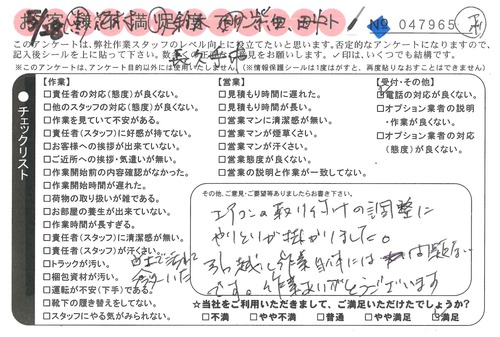 No 047965
このアンケートは、弊社作業スタッフのレベル向上に役立てたいと思います。否定的なアンケートになりますので、
記入後シールを上に貼って下さい。数 ご意見をお願いします。✓印は、いくつでも結構です。
※このアンケートは、アンケート目的以外には使用いたしません。(※情報保護シールは1度はがすと、再度貼りなおすことはできません)
チェックリスト
【作業】
□責任者の対応(態度)が良くない。
□他のスタッフの対応(態度)が良くない。
□作業を見ていて不安がある。
□責任者(スタッフ)に好感が持てない。
□お客様への挨拶が出来ていない。
□ご近所への挨拶・気遣いが無い。
□作業開始前の内容確認がなかった。
□作業開始時間が遅れた。
□荷物の取り扱いが雑である。
□お部屋の養生が出来ていない。
□作業時間が長すぎる。
□責任者(スタッフ)に清潔感が無い。
□責任者(スタッフ)が汗くさい。
□トラックが汚い。
□梱包資材が汚い。
□運転が不安(下手)である。
□靴下の履き替えをしてない。
□スタッフにやる気がみられない。
【営業】
□見積もり時間に遅れた。
□見積もり時間が長い。
□営業マンに清潔感が無い。
□営業マンが煙草くさい。
□営業マンが汗くさい。
□営業態度が良くない。
□営業の説明と作業が一致してない。
【受付・その他】
□電話の対応が良くない。
□オプション業者の説明
・作業が良くない。
□オプション業者の対応
(態度)が良くない。
その他、ご意見・ご要望等ありましたらお書き下さい。
エアコンの取り付けの調整に
やりとりが掛かりました。
引っ越し作業自体には 問題ない
です。作業ありがとうございます
☆当社をご利用いただきまして、ご満足いただけたでしょうか?
□不満 □やや不満 □普通 □やや満足 ☑満足